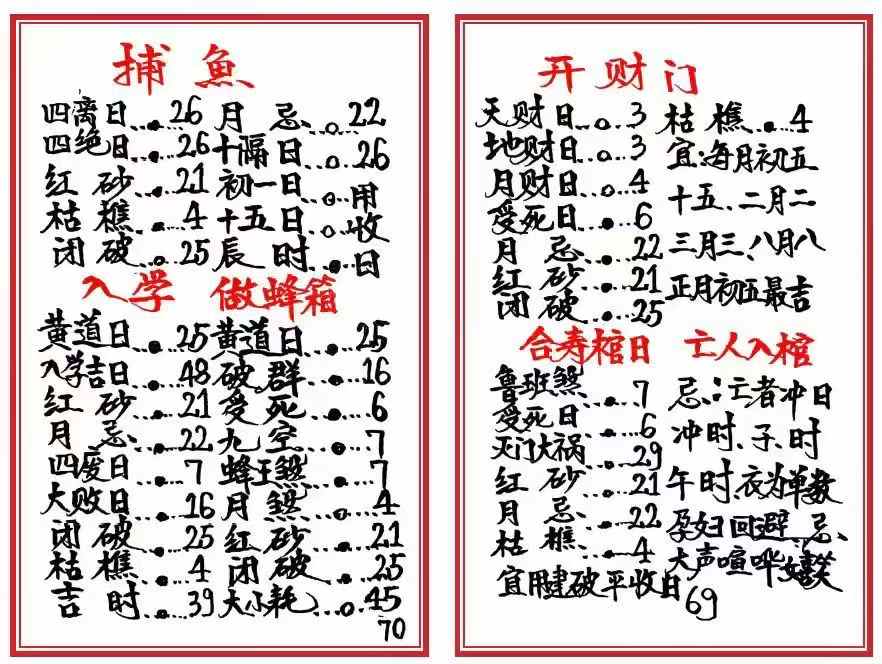 捕魚
四离日...26 月忌...22
四绝日...26 十隔日...26
红砂...21 初一日...用
枯樵...4 十五日...收
闭破...25 辰时...日
入学 做蜂箱
黄道日...25 黄道日...25
入学吉日...48 破群...16
红砂...21 受死...6
月忌...22 九空...7
四废日...7 蜂王煞...7
大败日...16 月煞...4
闭破...25 红砂...21
枯樵...4 闭破...25
吉时...39 大小耗...45
70
开财门
天财日...3 枯樵...4
地财日...3 宜:每月初五
月财日...4 十五、二月二
受死日...6 三月三、八月八
月忌...22 正月初五最吉
红砂...21
闭破...25
合寿棺日 亡人入棺
鲁班煞...7 忌:亡者冲日
受死日...6 冲时、子、时
灭门大祸...29 午时、衣为单数
红砂...21 孕妇回避、忌、
月忌...22 大声喧哗嬉笑
枯樵...4
宜用建破平收日
69